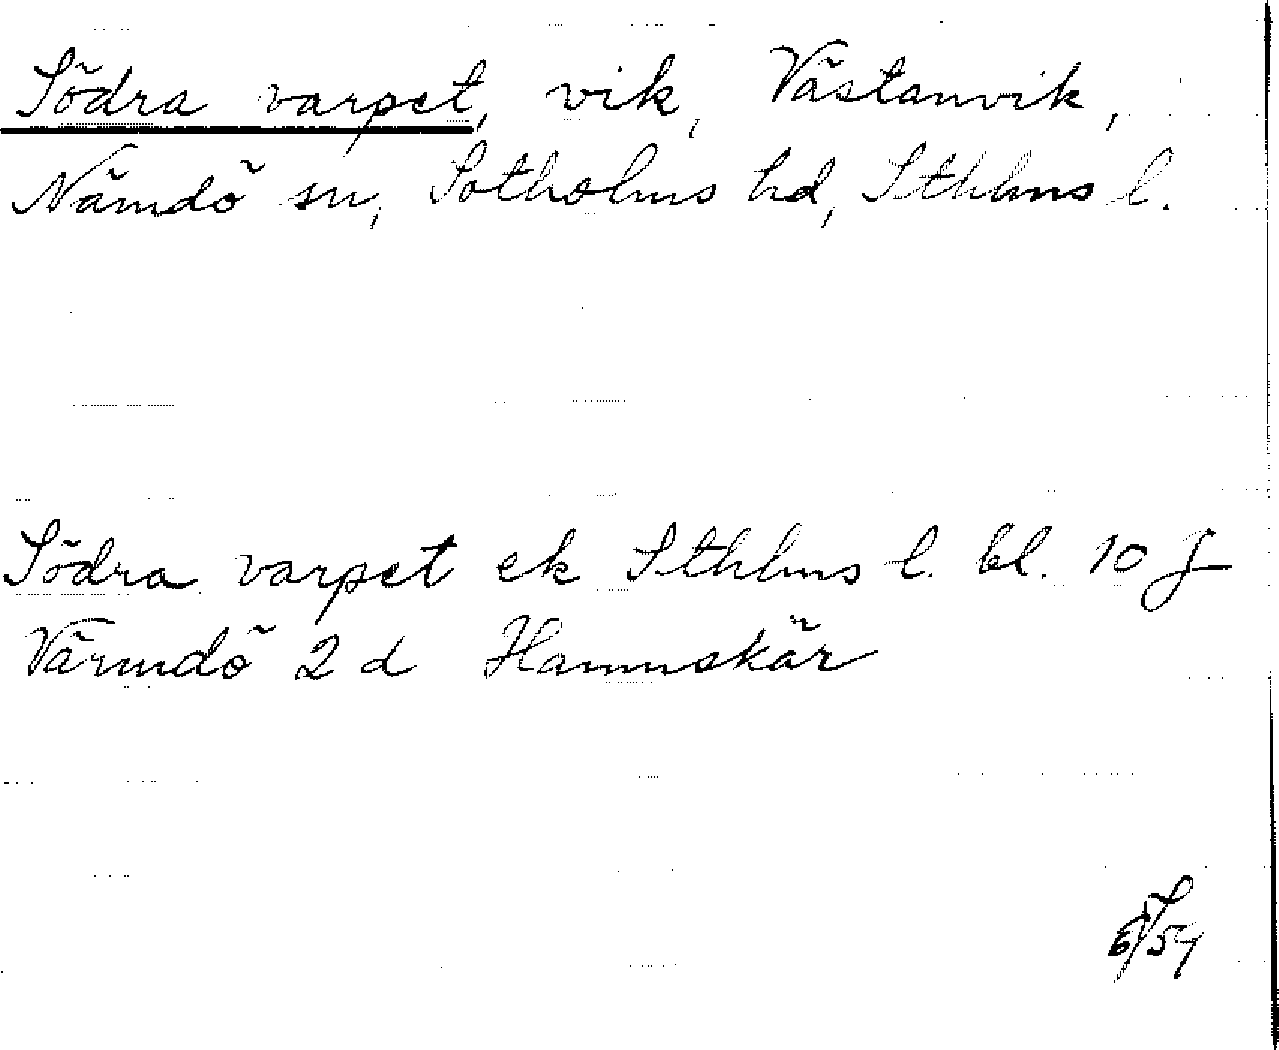 Södra varpet, vik, Västanvik,
Nämdö sn, Sotholms hd, Sthlms l.
Södra varpet ek Sthlms l. bl. 10 J
Värmdö 2 d Hamnskär